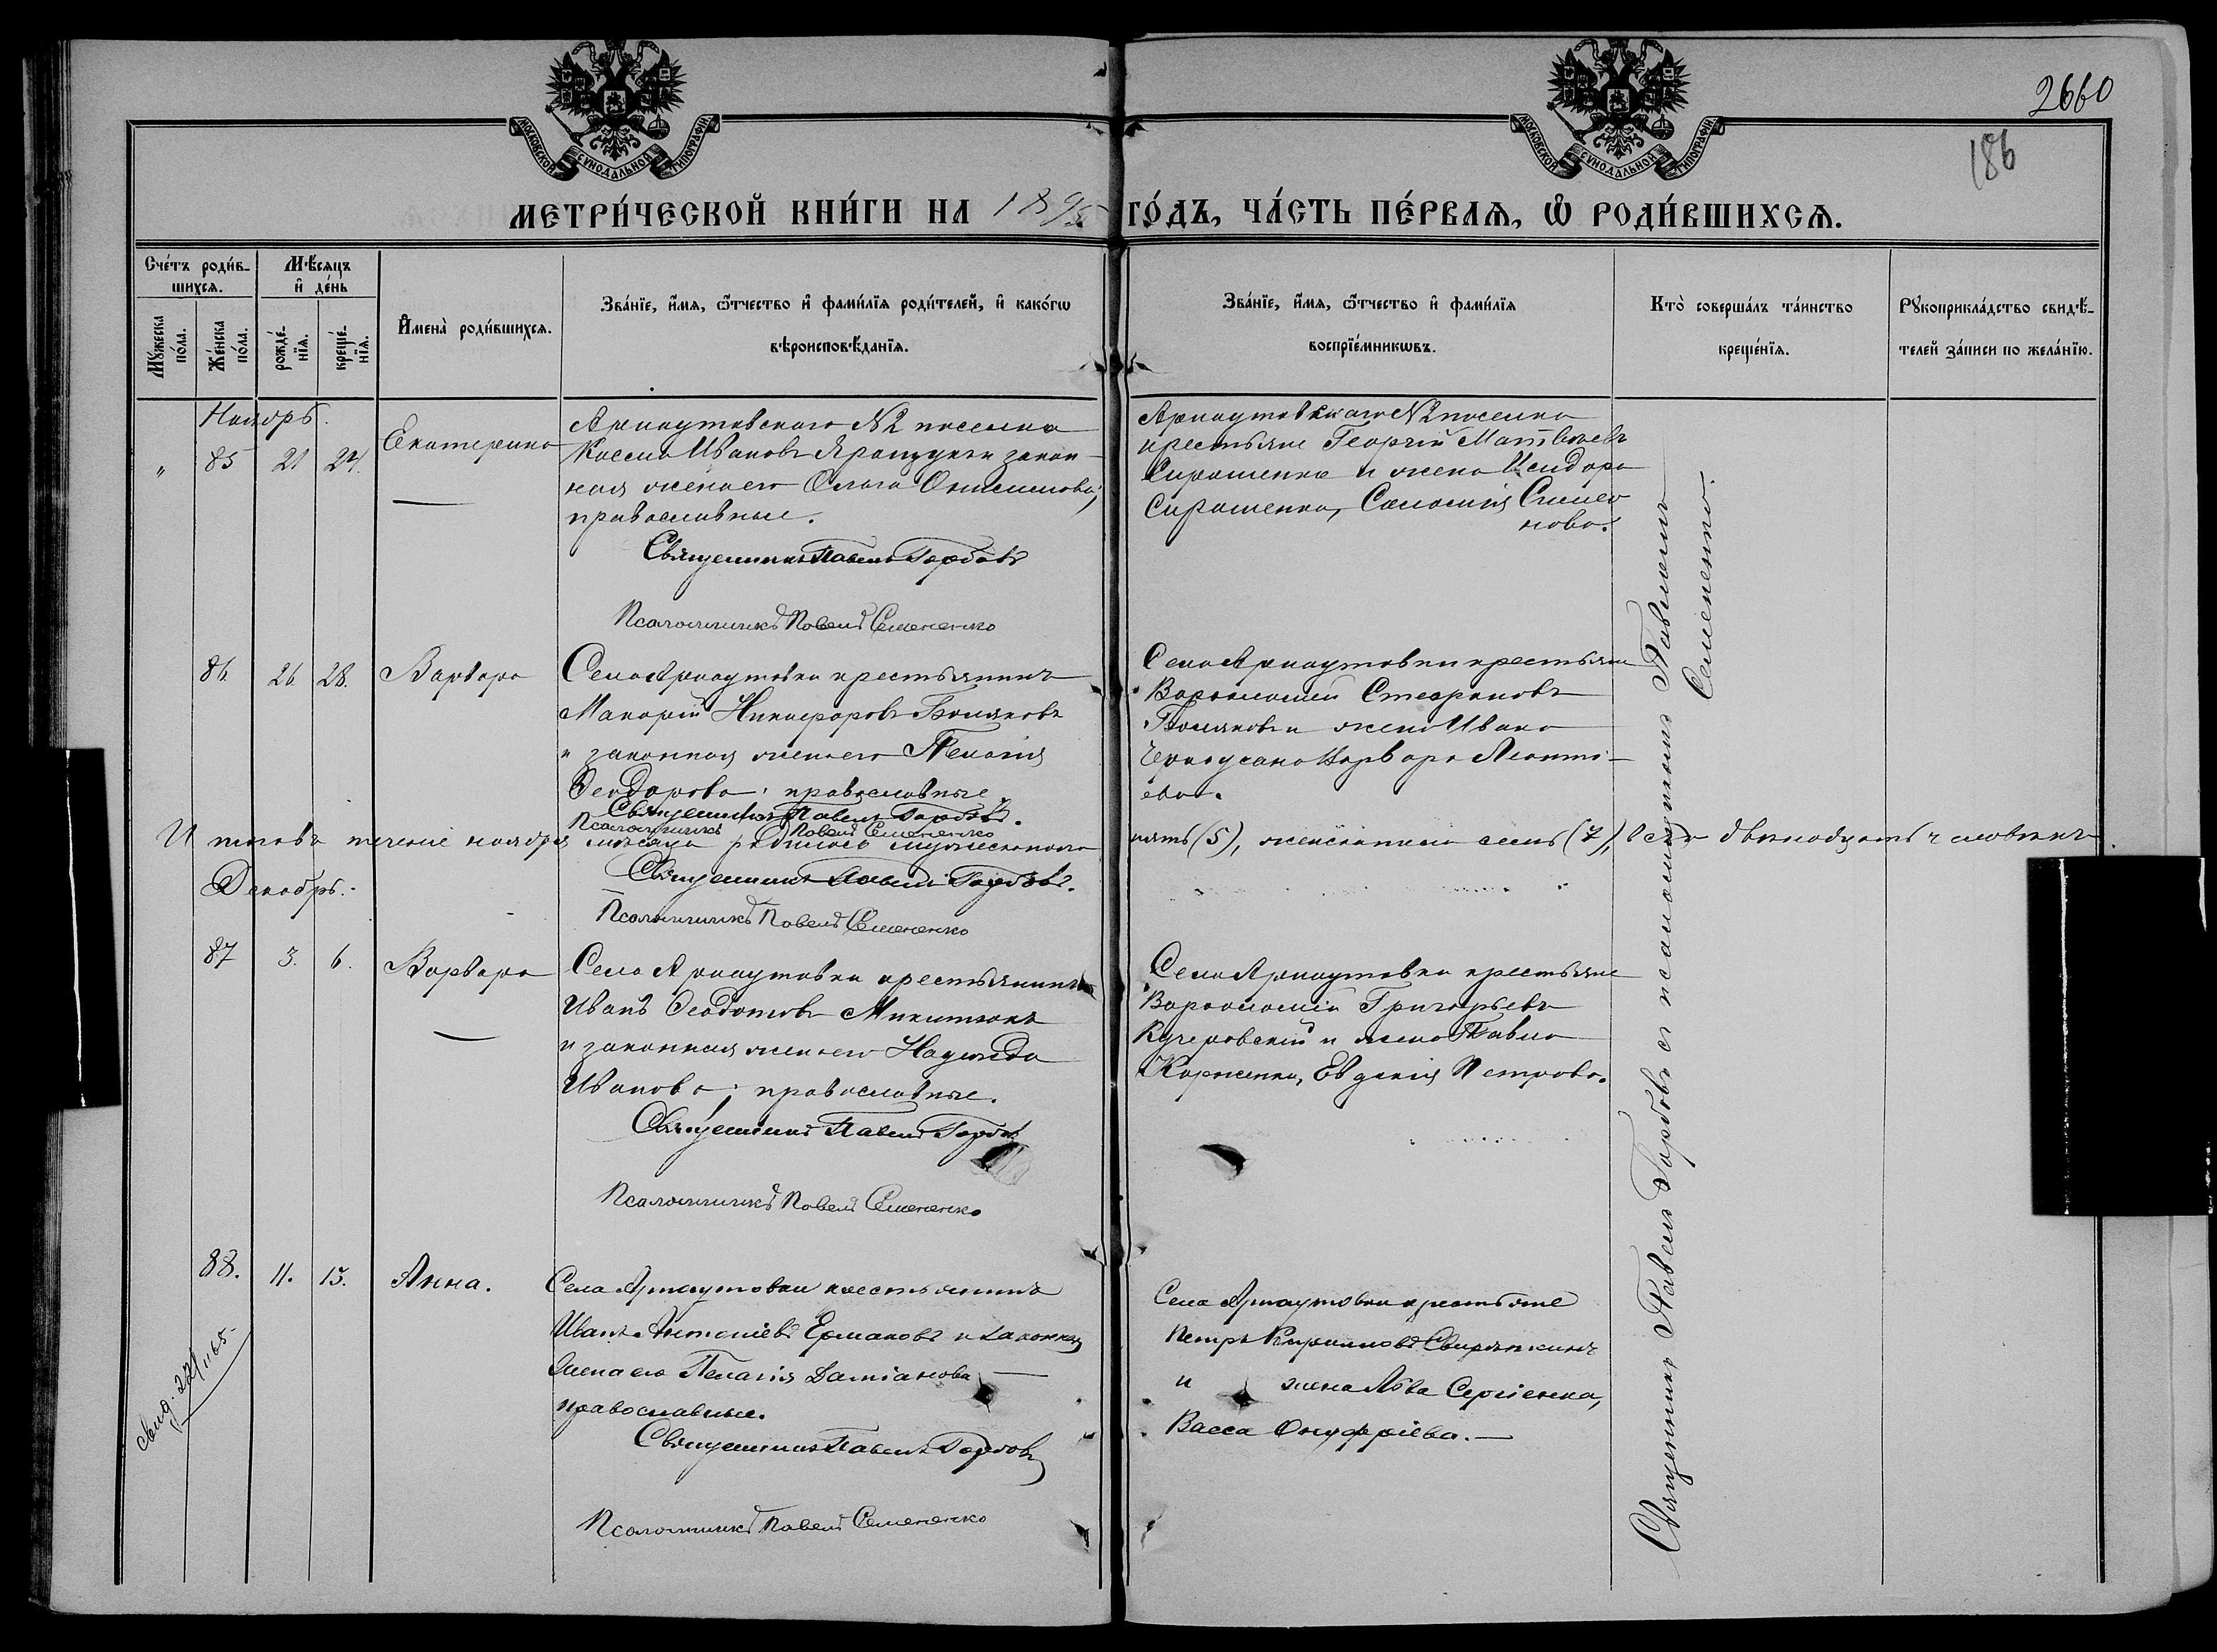 2660
186
МОСКОВСКОЙ СѴНОДАЛЬНОЙ ТИПОГРАФІИ
МОСКОВСКОЙ СѴНОДАЛЬНОЙ ТИПОГРАФІИ
МЕТРИ́ЧЕСКОЙ КНИ́ГИ НА 1895 ГО́ДЪ, ЧА́СТЬ ПЕ́РВАѦ, Ѡ РОДИ́ВШИХСѦ.
Сче́тъ роди́в-
шихсѧ.
Мѣсѧцъ
и де́нь
Мꙋжеска
по́ла.
Же́нска
по́ла.
рожде́-
нїѧ.
креще́-
нїѧ.
Имена̀ роди́вшихсѧ.
Зва́нїе, и́мѧ, ѻ҆́тчество и фами́лїѧ роди́телей, и како́гѡ
вѣроисповѣ́данїѧ.
Зва́нїе, и́мѧ, ѻ҆́тчество и фами́лїѧ
воспрїе́мникѡвъ.
Кто̀ соверша́лъ та́инство
креще́нїѧ.
Рꙋкоприкла́дство свидѣ́-
телей за́писи по жела́нїю.
Ноябрь.
" 85 21 24. Екатерина
Арнаутовскаго №2 поселка
Косма Ивановъ и закон-
ная жена его Ольга Онисимова;
православные.
Священникъ Павелъ Горбовъ
Псаломщикъ Павелъ Семененко
Арнаутовскаго №2 поселка
крестьяне Георгій Матвѣевъ
Сирошенко и жена Исидора
Сирошенко, Саломія Симео
нова.
86. 26 28. Варвара
Села Арнаутовки крестьянинъ
Макарій Никифоровъ Поляковъ
и законная жена его Пелагія
Ѳеодорова; православные.
Священникъ Павелъ Горбовъ.
Псаломщикъ Павелъ Семененко
Села Арнаутовки крестьяне
Варѳоломей Стефановъ
Поляковъ и жена Ивана
Черноусана Варвара Леонті-
ева.
Итого въ теченіе ноября мѣсяца родилось мужескаго пола пять (5), женскаго пола семь (7), всего двѣнадцать человѣкъ.
Священникъ Павелъ Горбовъ.
Псаломщикъ Павелъ Семененко
Декабрь.
87 3. 6. Варвара
Села Арнаутовки крестьянинъ
Иванъ Ѳеодотовъ Микитюкъ
и законная жена его Надежда
Иванова; православные.
Священникъ Павелъ Горбовъ
Псаломщикъ Павелъ Семененко
Села Арнаутовки крестьяне
Варѳоломей Григорьевъ
Кучеровскій и жена Павла
Корженко, Евдокія Петрова.
88. 11. 15. Анна.
Села Арнаутовки крестьянинъ
Иванъ Антоніевъ Ермаковъ и законная
жена его Пелагія Даміанова
православные.
Священникъ Павелъ Горбовъ
Псаломщикъ Павелъ Семененко
Села Арнаутовки крестьяне
Петръ Кирилловъ
и жена Льва Сергіенка,
Васса Онуфріева.
Священникъ Павелъ Горбовъ съ псаломщикомъ Павломъ
Семененко.
свид. 221